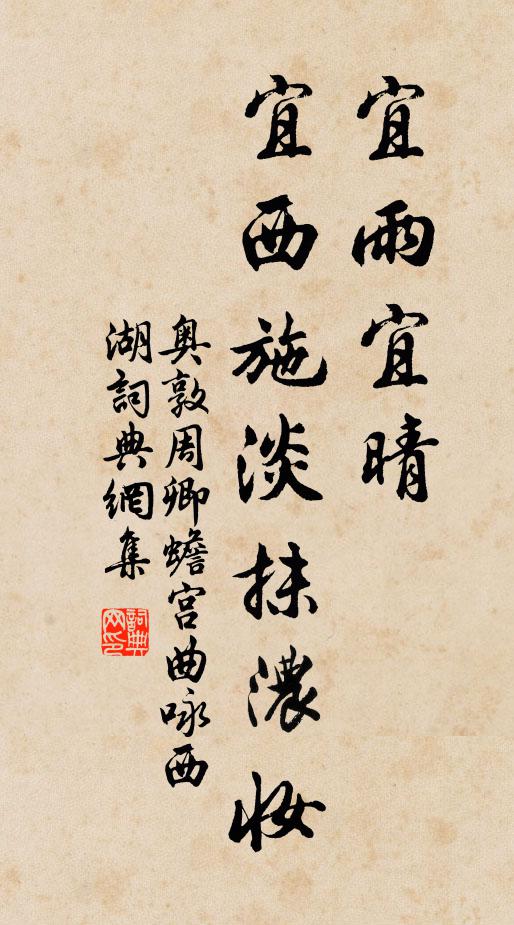 宜雨宜晴
宜西施淡抹濃妝
奧敦周卿蟾宮曲咏西
湖詞典網集
詞典
网印